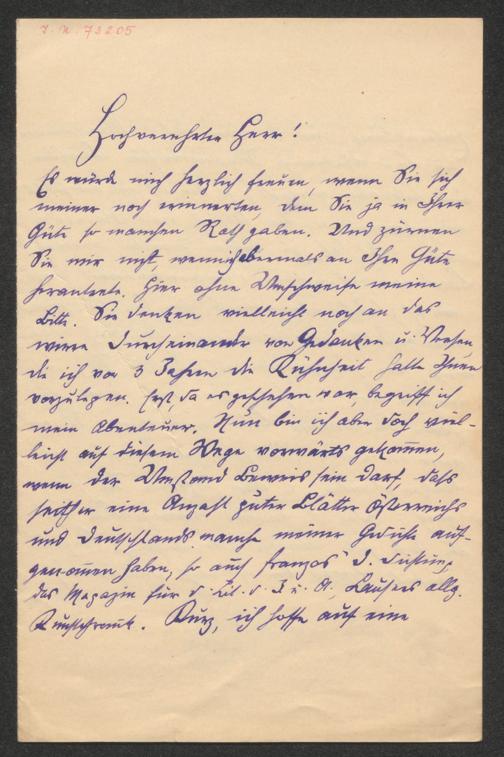 I. N. 73205
Hochverehrter Herr!
Es würde mich herzlich freuen, wenn Sie sich
meiner noch erinnerten, dem Sie ja in Ihrer
Güte so manchen Rath gaben. Und zürnen
Sie mir nicht, wenn ich abermals an Ihre Güte
herantrete. Hier ohne Umschweife meine
Bitte. Sie denken vielleicht noch an das
wirre Durcheinander von Gedanken u. Versen,
die ich vor 3 Jahren die Kühnheit hatte Ihnen
vorzulegen. Erst, da es geschehen war, begriff ich
mein Abenteuer. Nun bin ich aber doch viel-
leicht auf diesem Wege vorwärts gekommen,
wenn der Umstand Beweis sein darf, dass
seither eine Anzahl guter Blätter Österreichs
und Deutschlands manche meiner Gedichte auf-
genommen haben, so auch Franzos' D. Dichtung,
das Magazin für d. Lit. d. I. u. A., Lausers allg.
Kunstchronik. Kurz, ich hoffe auf eine